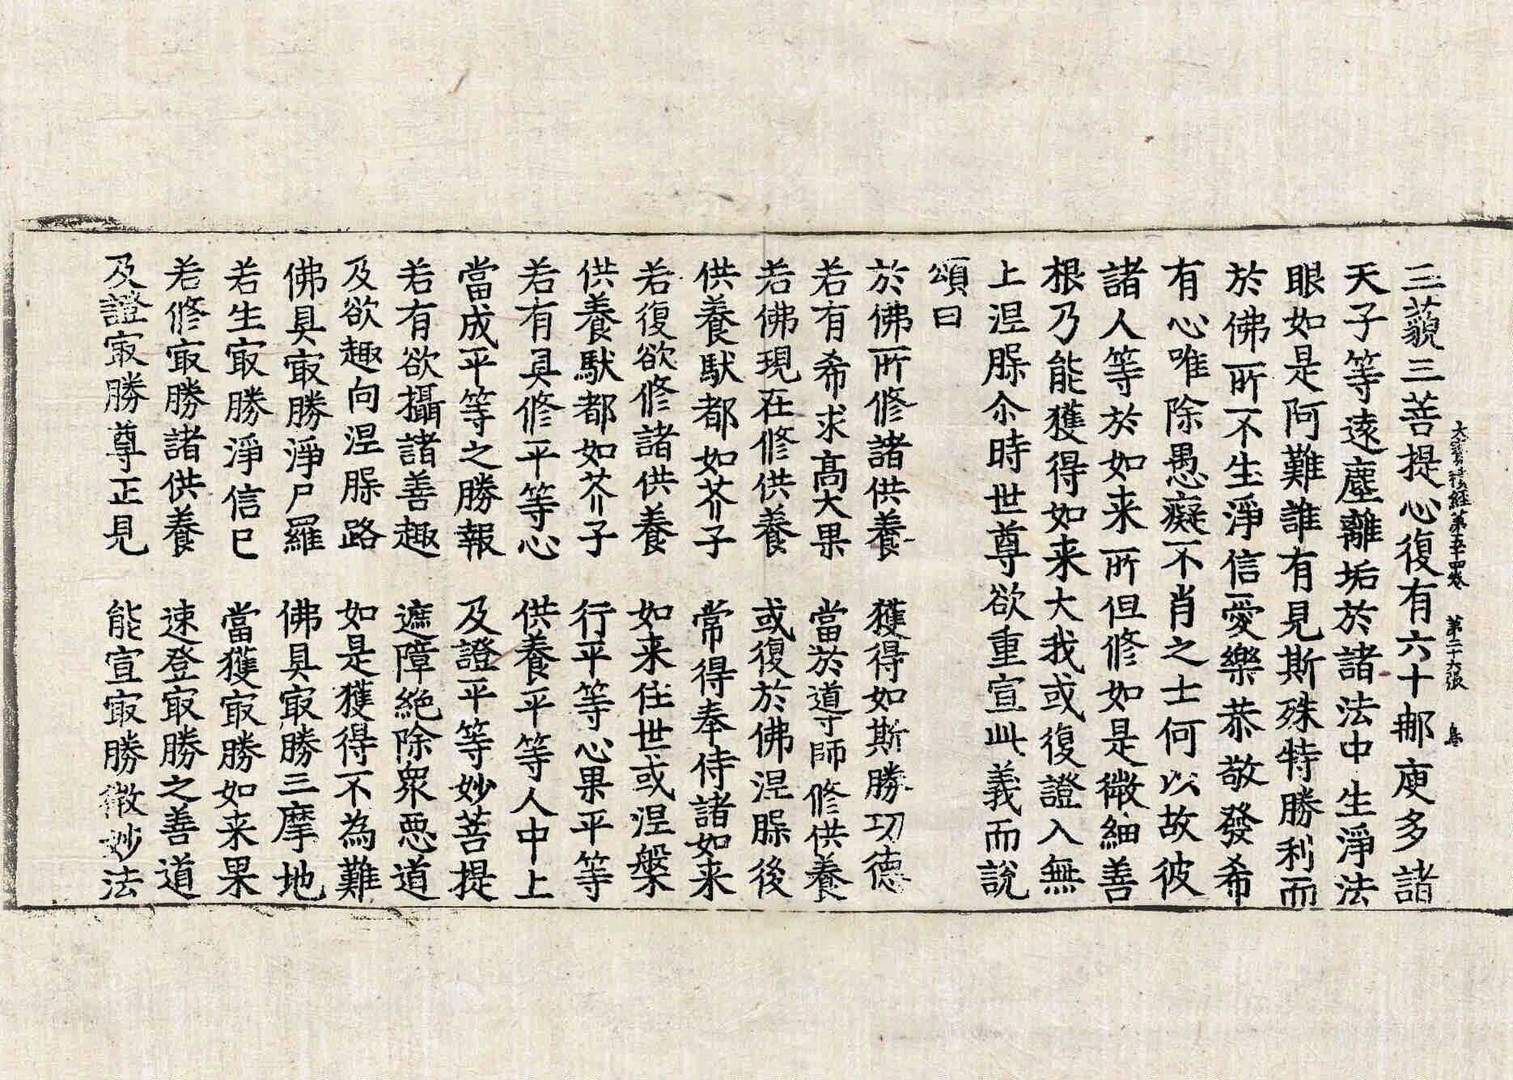 三藐三菩提心復有六十郍庾多諸
大寶積經第五十四卷 第二十六張 鳥
天子等遠塵離垢於諸法中生淨法
眼如是阿難誰有見斯殊特勝利而
於佛所不生淨信愛樂恭敬發希
有心唯除愚癡不肖之士何以故彼
諸人等於如来所但修如是微細善
根乃能獲得如来大我或復證入無
上涅槃尒時世尊欲重宣此義而說
頌曰
於佛所修諸供養 獲得如斯勝功德
若有希求高大果 當於導師修供養
若佛現在修供養 或復於佛涅槃後
供養馱都如芥子 常得奉侍諸如来
若復欲修諸供養 如来住世或涅槃
供養馱都如芥子 行平等心果平等
若有具修平等心 供養平等人中上
當成平等之勝報 及證平等妙菩提
若有欲攝諸善趣 遮障絕除眾惡道
及欲趣向涅槃路 如是獲得不為難
佛具㝡勝淨尸羅 佛具㝡勝三摩地
若生㝡勝淨信已 當獲㝡勝如来果
若修㝡勝諸供養 速登㝡勝之善道
及證㝡勝尊正見 能宣㝡勝微妙法